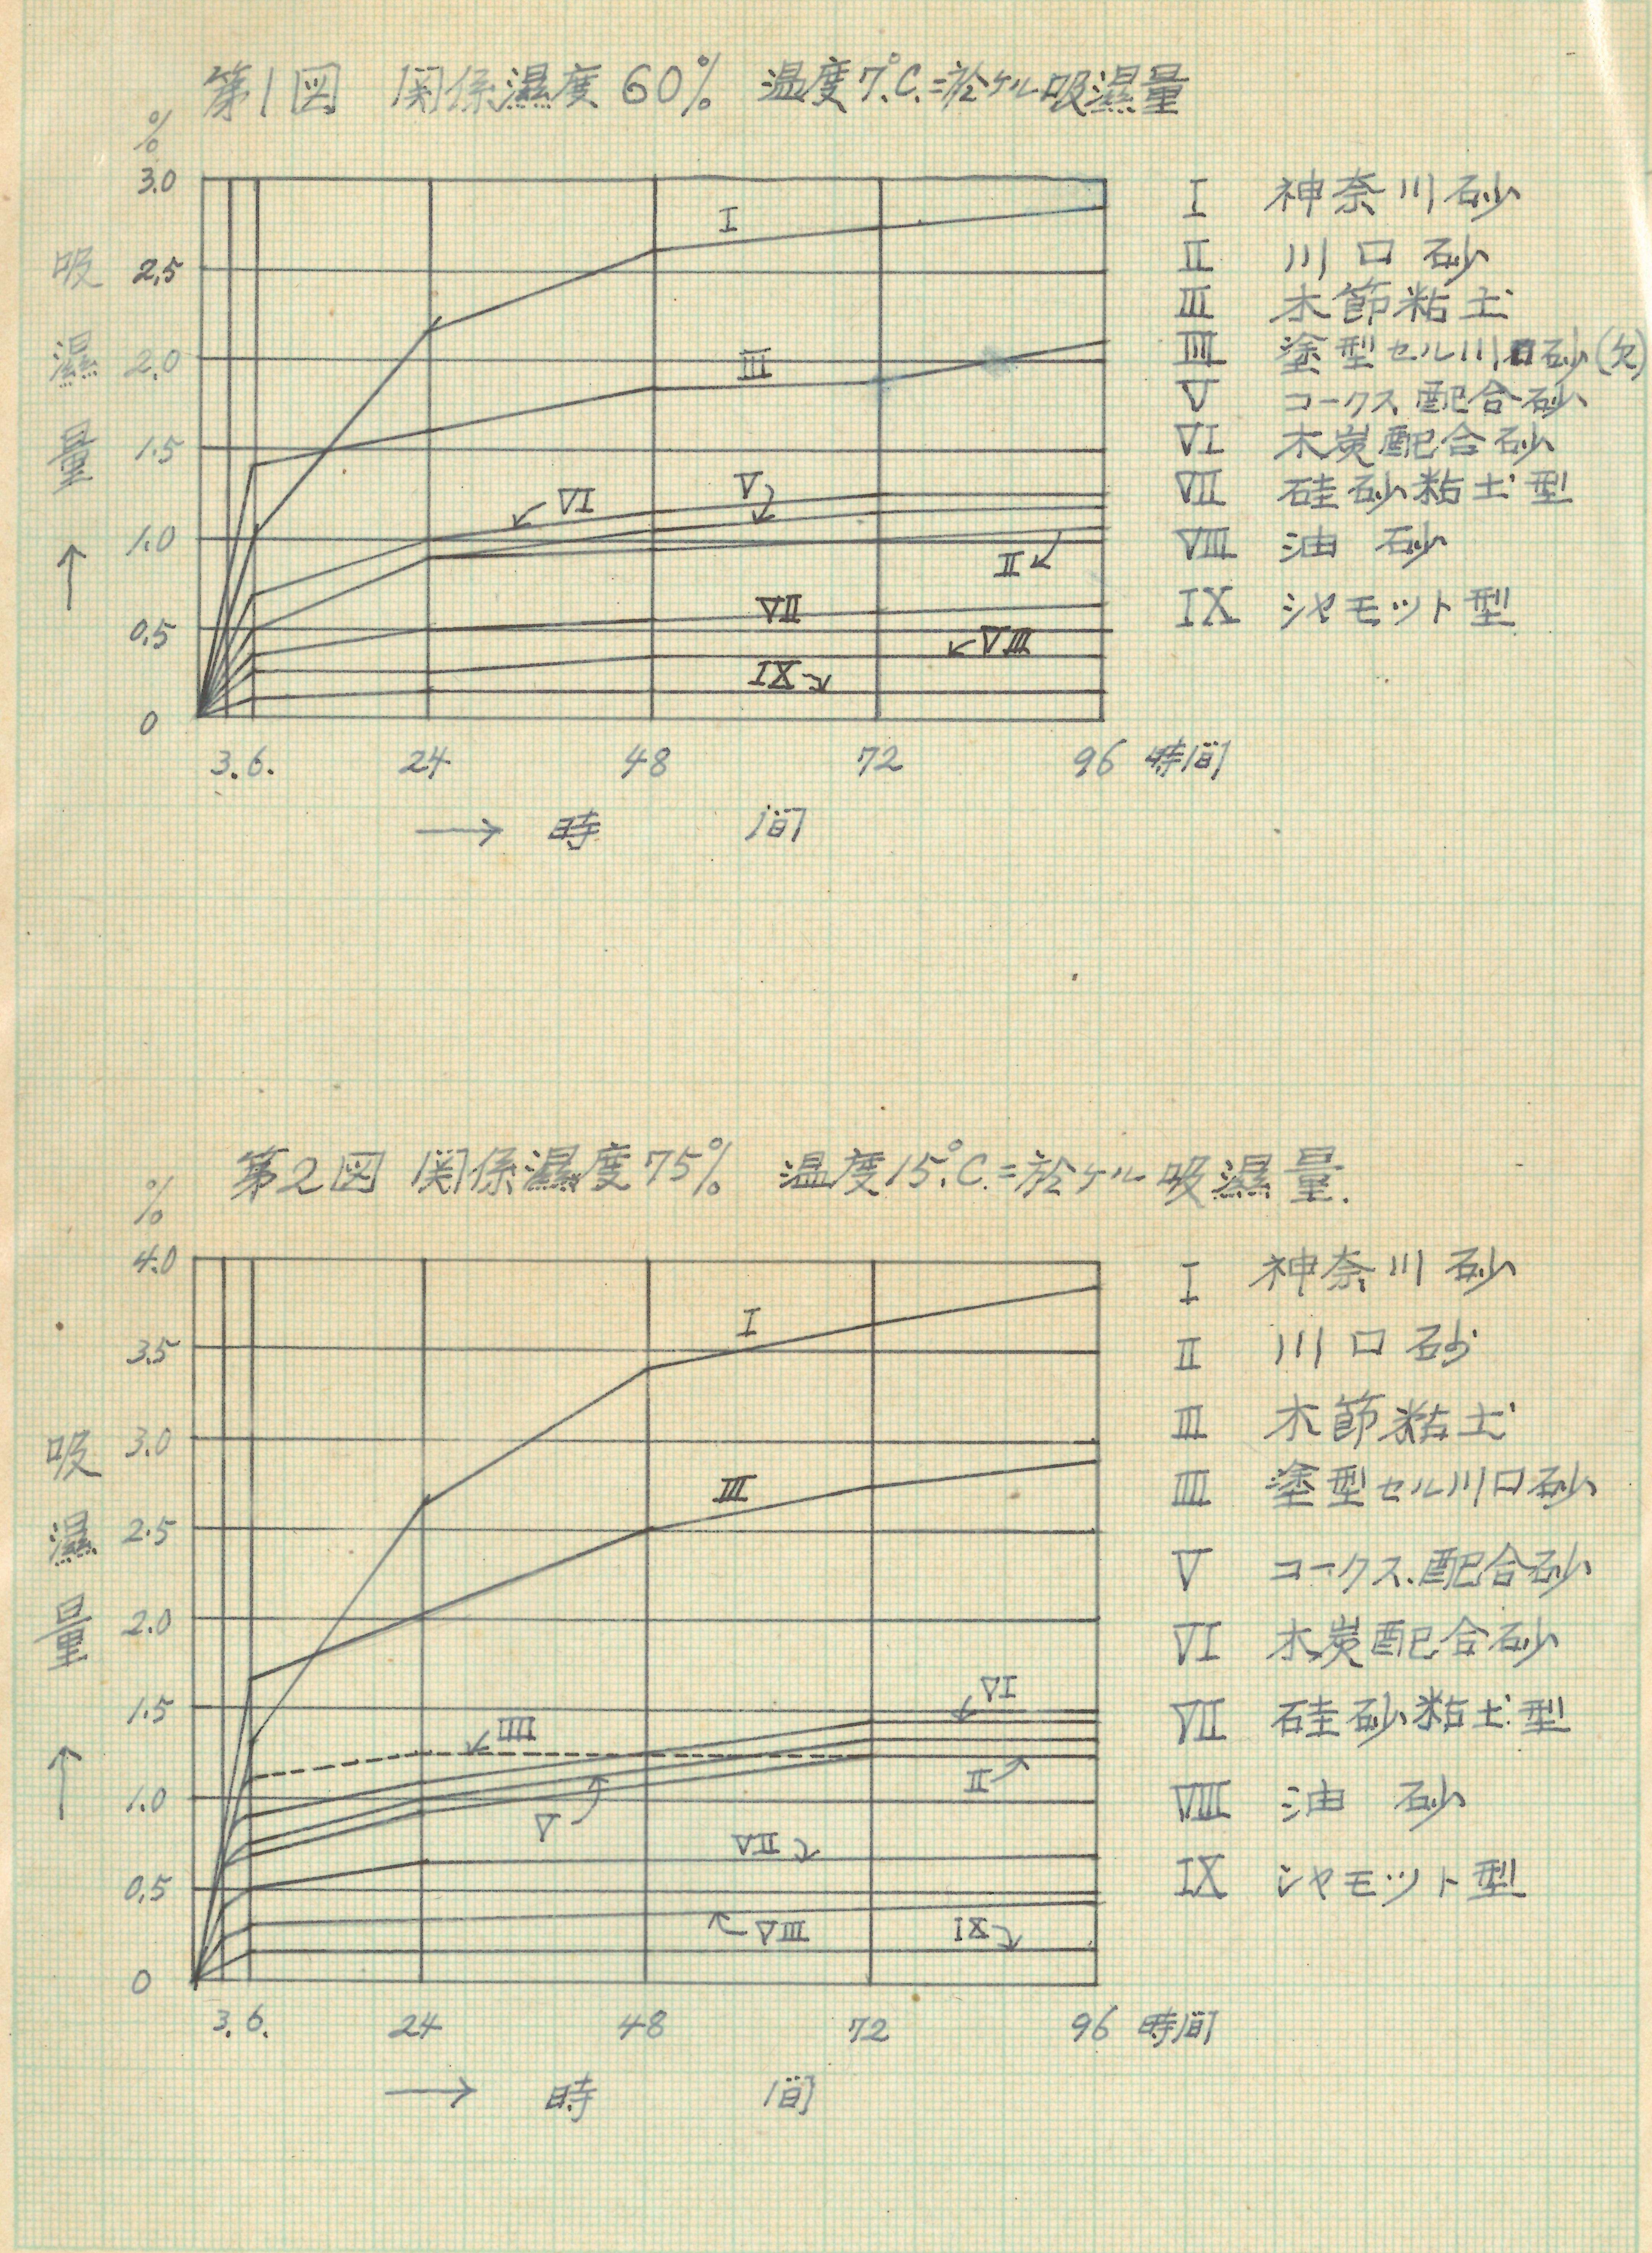 第1図 関係濕度60% 温度7°C.ニ於ケル吸濕量
%
3.0
2.5
2.0
1.5
1.0
0.5
0
吸濕量
↑
I
III
VI
V
II
VII
VIII
IX
3. 6. 24 48 72 96 時間
→ 時間
I 神奈川砂
II 川口砂
III 木節粘土
IIII 塗型セル川口砂(欠)
V コークス配合砂
VI 木炭配合砂
VII 硅砂粘土型
VIII 油砂
IX シャモット型
第2図 関係濕度75% 温度15°C.ニ於ケル吸濕量.
%
4.0
3.5
3.0
2.5
2.0
1.5
1.0
0.5
0
吸濕量
↑
I
III
VI
IIII
II
V
VII
VIII
IX
3. 6. 24 48 72 96 時間
→ 時間
I 神奈川砂
II 川口砂
III 木節粘土
IIII 塗型セル川口砂
V コークス.配合砂
VI 木炭配合砂
VII 硅砂粘土型
VIII 油砂
IX シャモット型